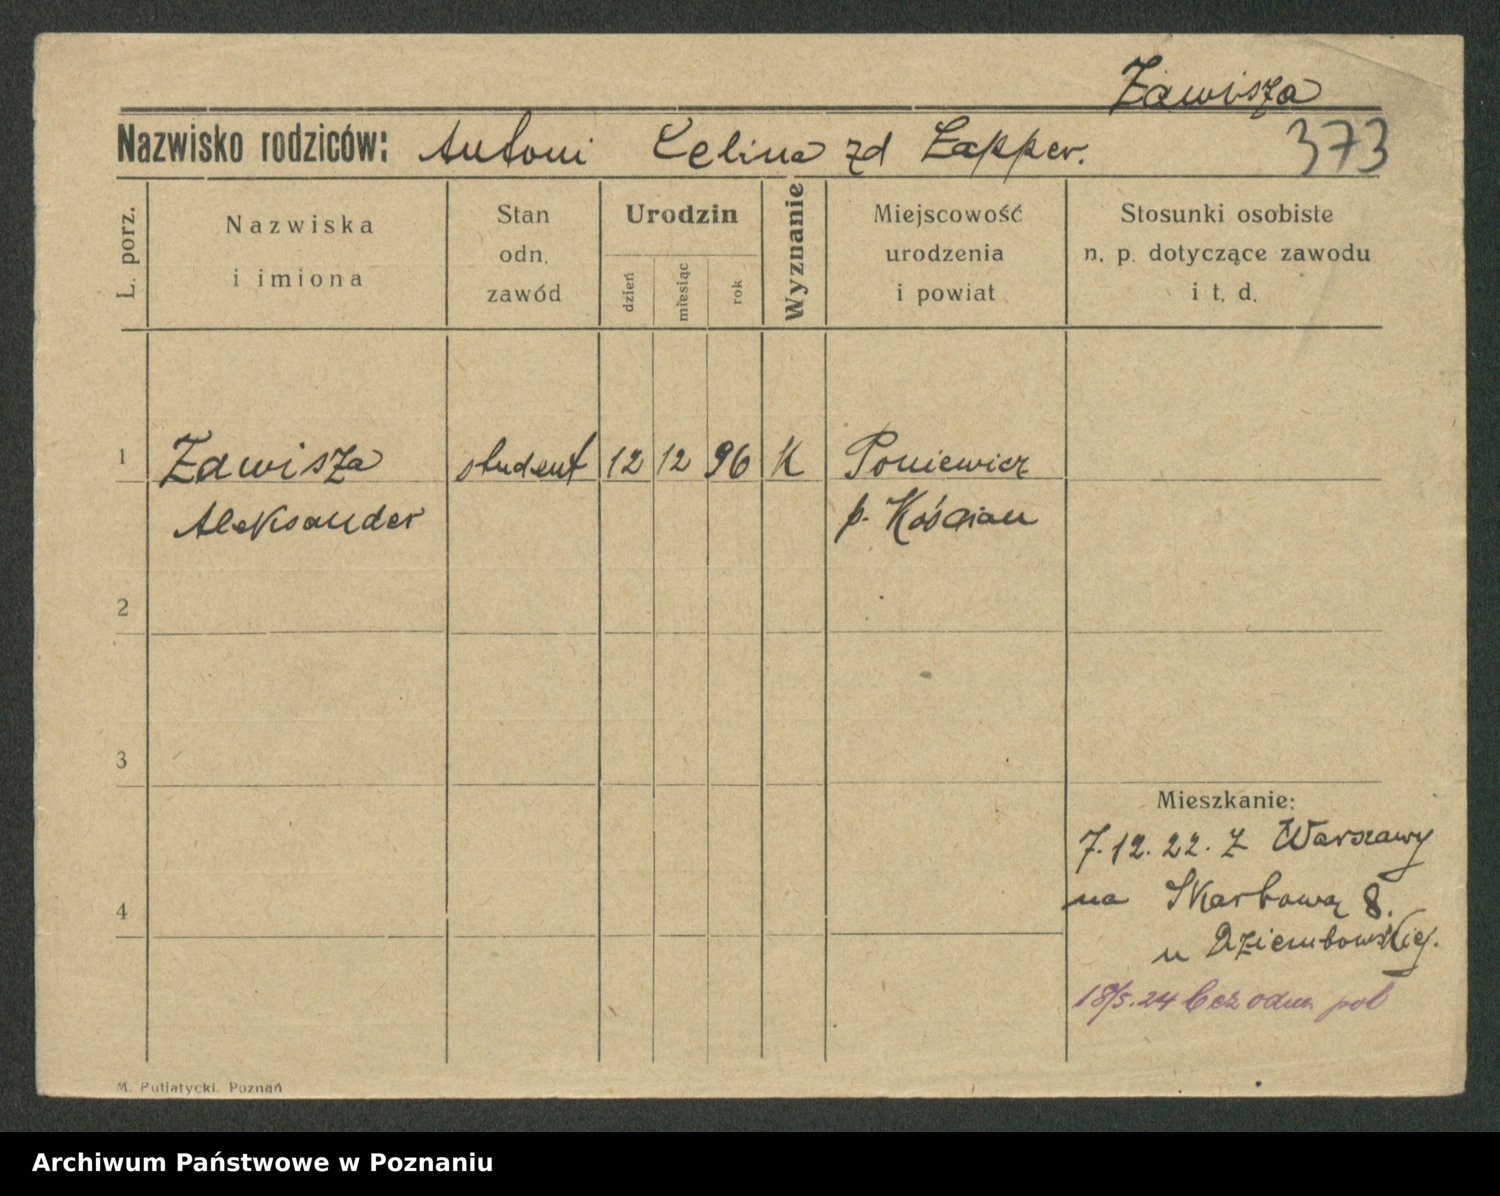 Zawisza
Nazwisko rodziców: Antoni Celina zd Zapper.
373
L. porz.
Nazwiska i imiona
Stan odn. zawód
Urodzin
dzień
miesiąc
rok
Wyznanie
Miejscowość urodzenia i powiat
Stosunki osobiste n. p. dotyczące zawodu i t. d.
1 Zawisza student 12 12 96 K Poniewicz
Aleksander p. Kościan
2
3
Mieszkanie:
7.12.22. z Warszawy
na Skarbową 8.
4
u Dziembowskiej.
18/5.24 bez odm pol
M. Putiatycki. Poznań
Archiwum Państwowe w Poznaniu